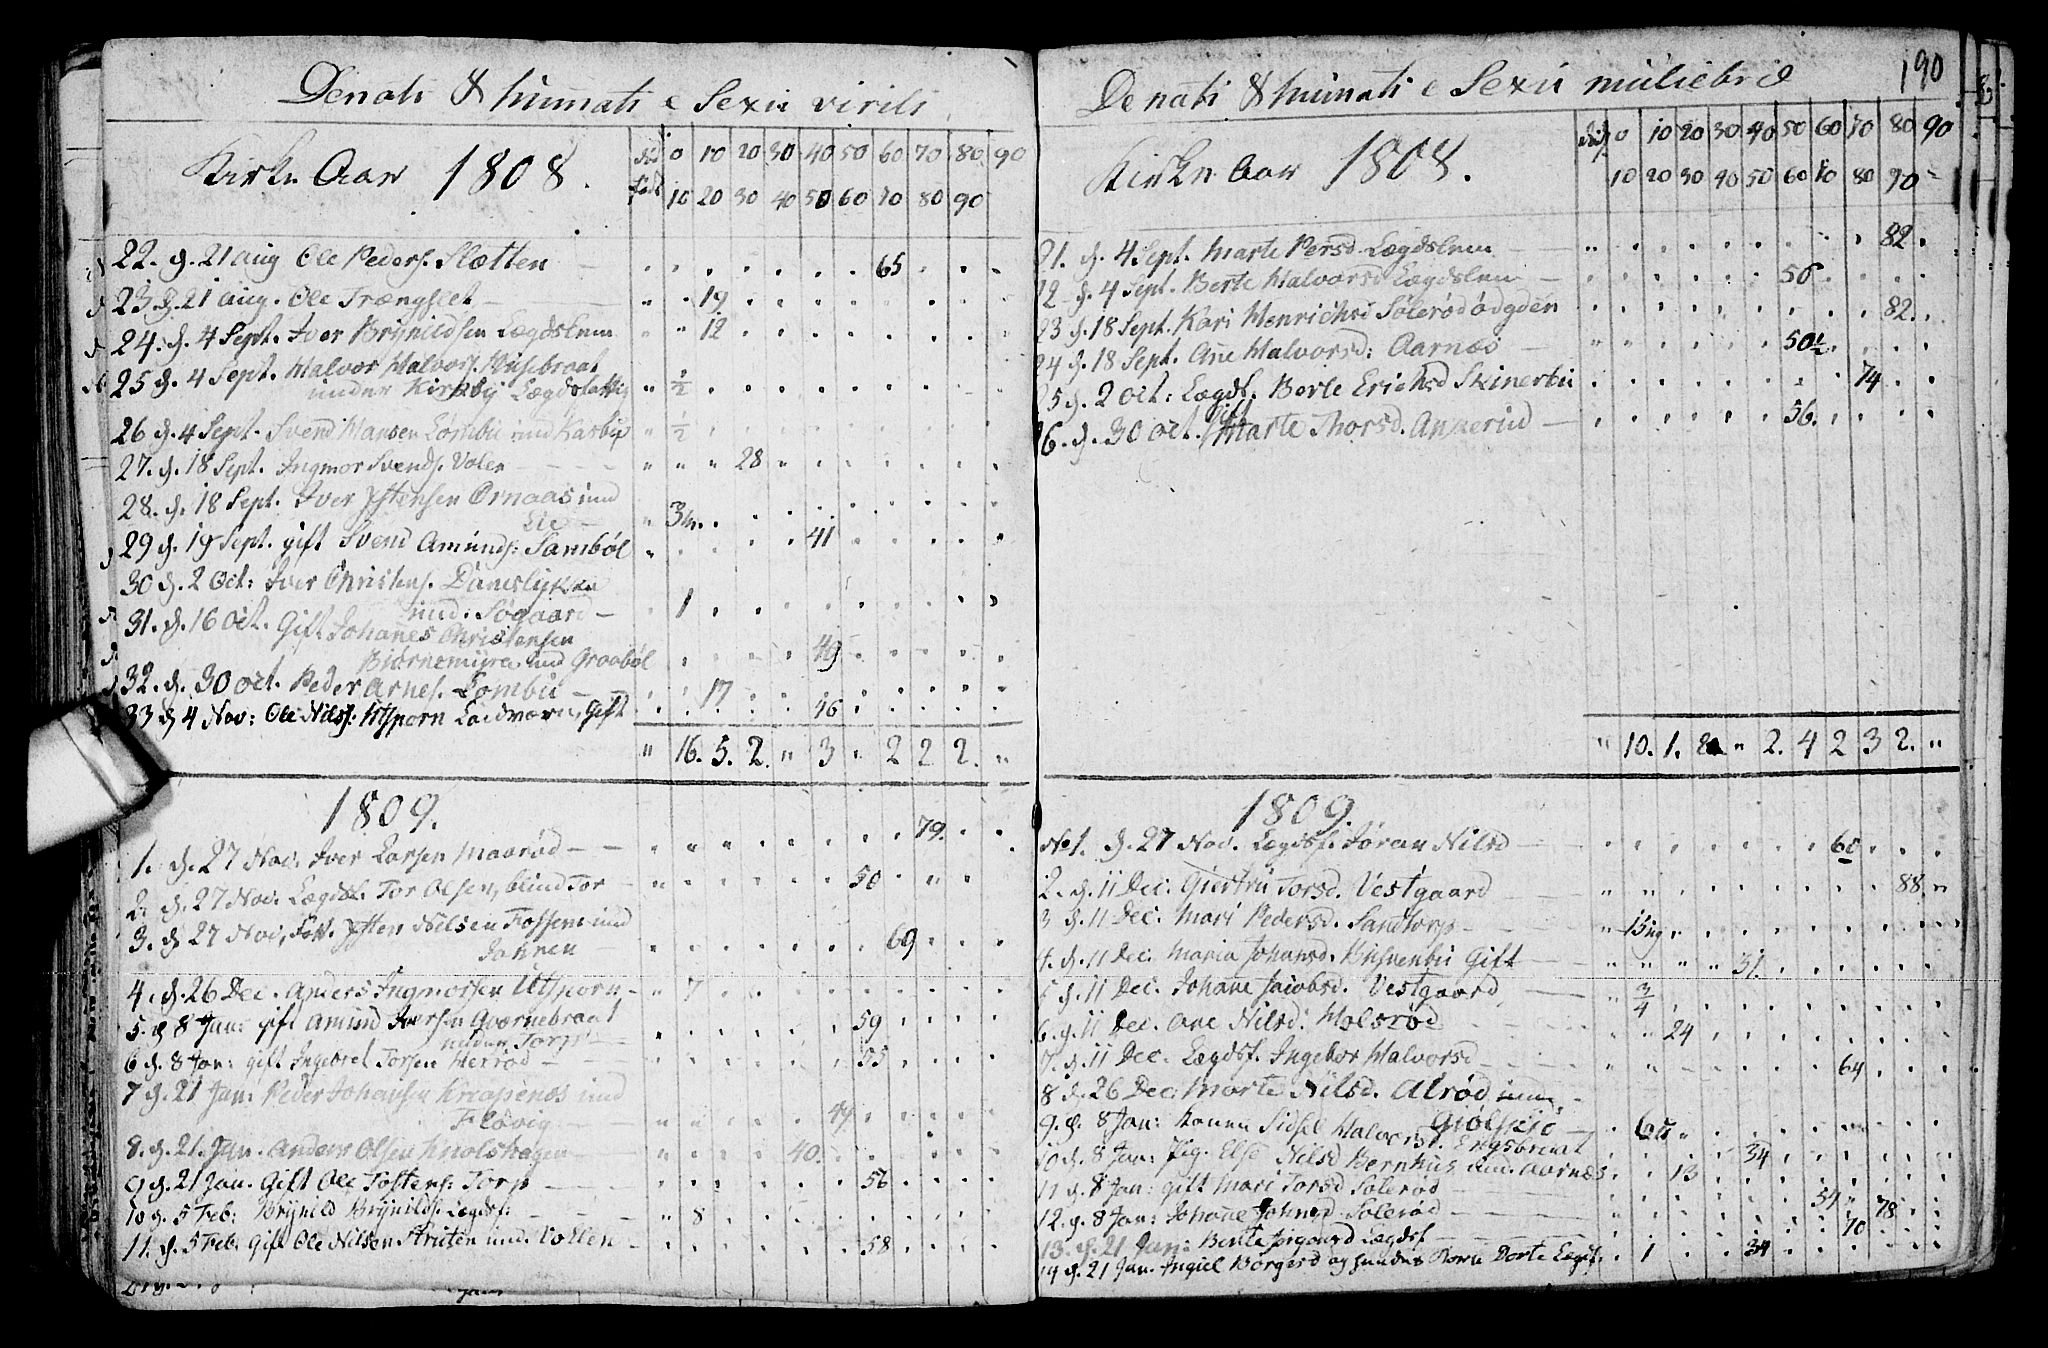 Denati & humati e Sexu virili
Kirke Aar 1808.
død født 0 10 20 30 40 50 60 70 80 90
10 20 30 40 50 60 70 80 90
22. d. 21 aug Ole Peders. Slotten 65
23 d. 21 aug. Ole Trængslet 19
24. d. 4 Sept. Iver Brynildsen Lægdslem 12
25 d. 4 Sept. Halvor Halvors. Husebraat
under Kirkeby Lægdsfattig 1/2
26 d. 4 Sept. Svend Hansen Lømbu und Kasbye 1/2
27. d. 18 Sept. Ingmor Svends. Volen 28
28. d. 18 Sept. Iver Jstensen Ornaas und
Lie 3/4
29 d. 19 Sept. gift Svend Amunds: Sambøl 41
30 d. 2 Oct: Iver Christens. Daneslykken
und: Søgaard 1
31. d. 16 Oct. Gift Johanes Christensen
Biørnemyra und Graabøl 49
32. d. 30 Oct. Peder Arnes. Lombu 17
33 d 4 Nov: Ole Nilss. Utsporn Gift 46
" 16. 5. 2. " 3 " 2 2 2. "
1809.
1. d. 27 Nov: Iver Larsen Maarød 79.
2. d. 27 Nov: Lægdsl. Tor Olsen, blind Tor 50
3. d 27 Nov, Fatt. Jsten Nilsen Fossem und
69
4. d. 26 Dec. Anders Ingmorsen Utsporn 7
5. d 8 Jan: gift Amund Iversen Qværnebraat
under Torp 59
6 d. 8 Jan: gift Ingebret Torsen Herrød 55
7 d. 21 Jan: Peder Johansen Knapenæs und
Fløvig 44
8. d. 21. Jan. Anders Olsen Knolshagen 40.
9 d. 21 Jan. Gift Ole Tostens: Torp 56
10 d. 5 Feb: Brynild Brynilds. Lægdsf: 8
11. d. 5 Feb. Gift Ole Nilsen Struten und. Vollen 58
Denati & humati e Sexu muliebrie 190
Kirke Aar 1808.
0 10 20 30 40 50 60 70 80 90
10 20 30 40 50 60 70 80 90
21. d. 4 Sept. Marte Persd. Lægdslem 82
22 d. 4 Sept. Berte Halvorsd Lægdslem 56
23 d. 18 Sept. Kari Henrichsd Sølerødødgden 82.
24 d. 18 Sept. Ane Halvorsd: Aarnæs 50 1/2
25 d. 2 Oct: Lægdsf. Berte Erichsd Skinerbu 74
26. d. 30 Oct. Gift Marte Thorsd. Annerud 56.
" 10. 1. 2 " 2. 4 2 3 2. "
1809.
No 1. d. 27 Nov. Lægdsf. Jøran Nilsd 60
2. d. 11 Dec: Giertru Torsd. Vestgaard 88
3 d. 11 Dec. Mari Pedersd. Sandtorp
4. d. 11 Dec. Maria Johansd. Gift 31.
5 d. 11 Dec. Johane Jacobsd. Vestgaard 3/4
6. d. 11 Dec. Ane Nilsd: Holsrød 24
7. d. 11 Dec. Lægdsf. Ingebor Halvorsd 64
8 d. 26 Dec: Marte Nilsd. Alrød und
Giølssiø
9. d. 8 Jan: Konen Sidsel Halvorsd. Engsbraat
10 d. 8 Jan: Pig. Else Nilsd Bernhus und: Aarnæs 13
11 d. 8 Jan: gift Mari Torsd Solerød 54
12. d. 8 Jan: Johane Johnsd Sølerød 78
13. d. 21 Jan: Berte Lægdsf 70
14 d. 21 Jan. Ingiel Borgersd og hendes Dorte Lægdsf. 1 34